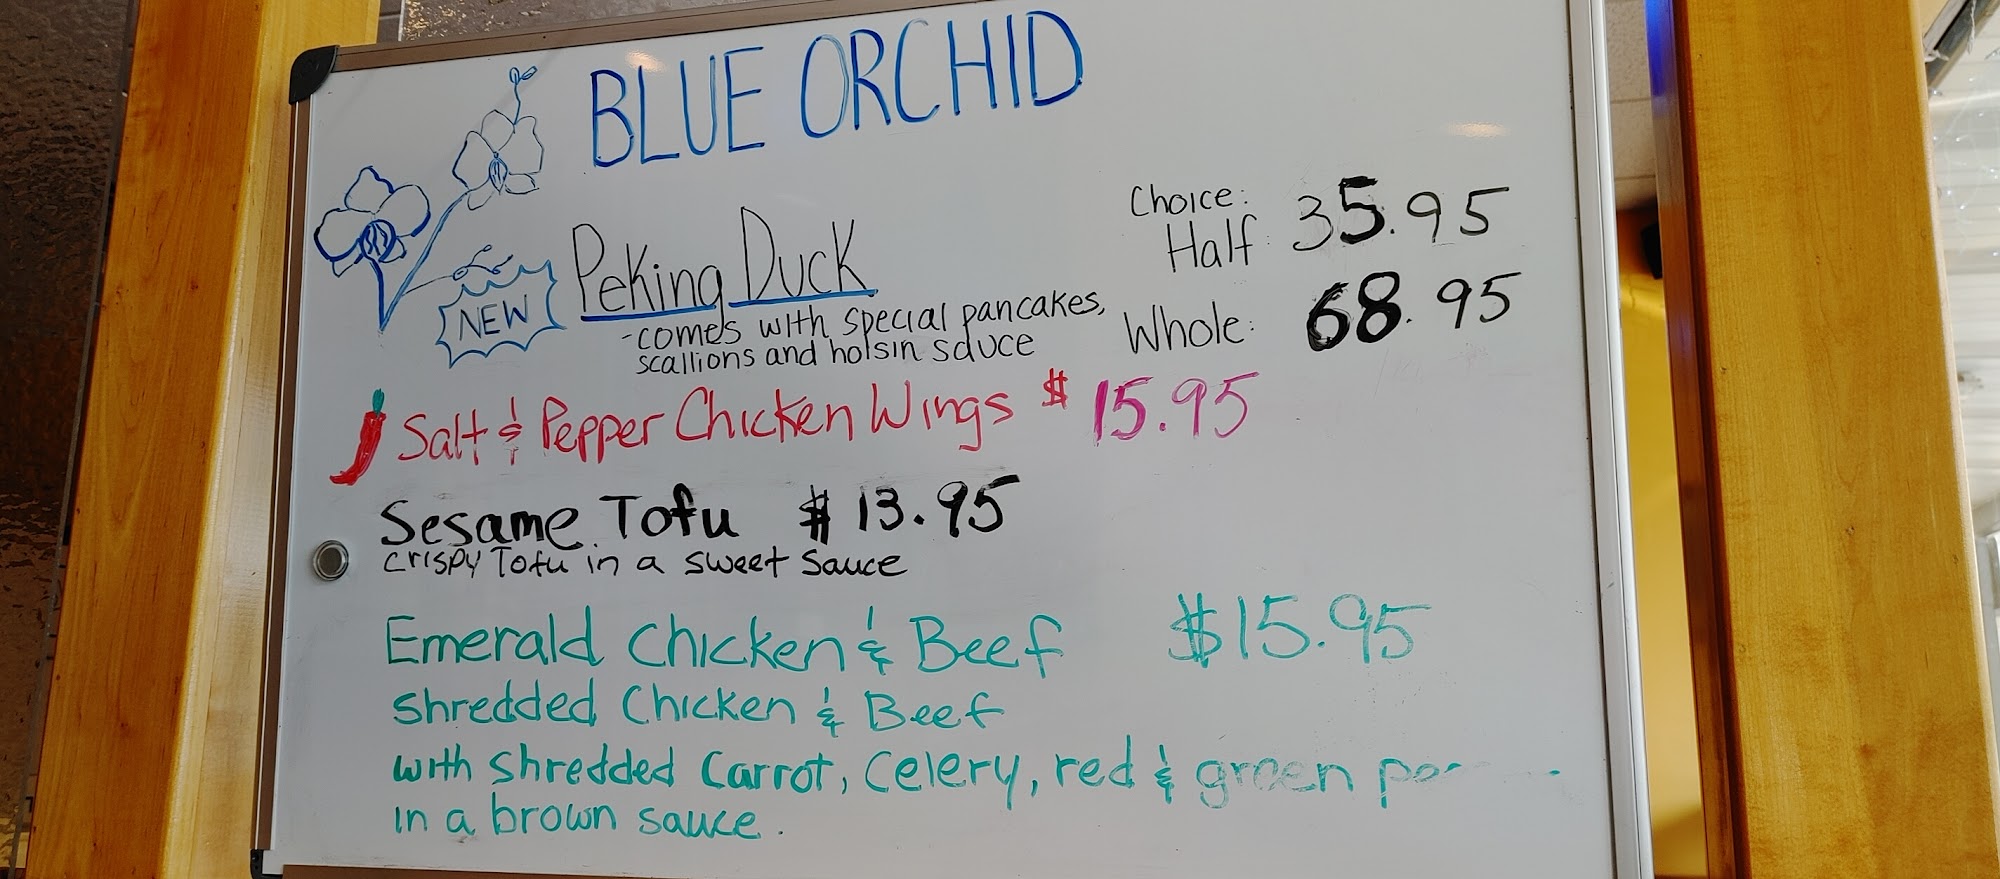 BLUE ORCHID
NEW
Peking Duck
-comes with special pancakes,
scallions and hoisin sauce
Choice:
Half: 35.95
Whole: 68.95
Salt & Pepper Chicken Wings $ 15.95
Sesame Tofu $ 13.95
crispy Tofu in a sweet sauce
Emerald Chicken & Beef $15.95
Shredded Chicken & Beef
with shredded Carrot, Celery, red & green
in a brown sauce.